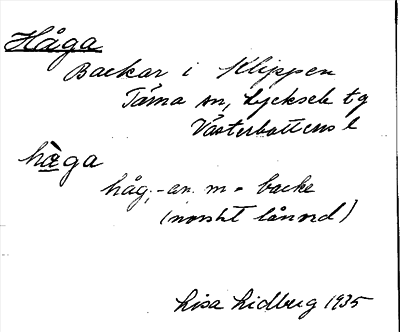 Håga
Backar i Klippen
Tärna sn, Lycksele tg
Västerbottens l
hàga
håg, -an. m = backe
(norskt lånord)
Lisa Lidberg 1935